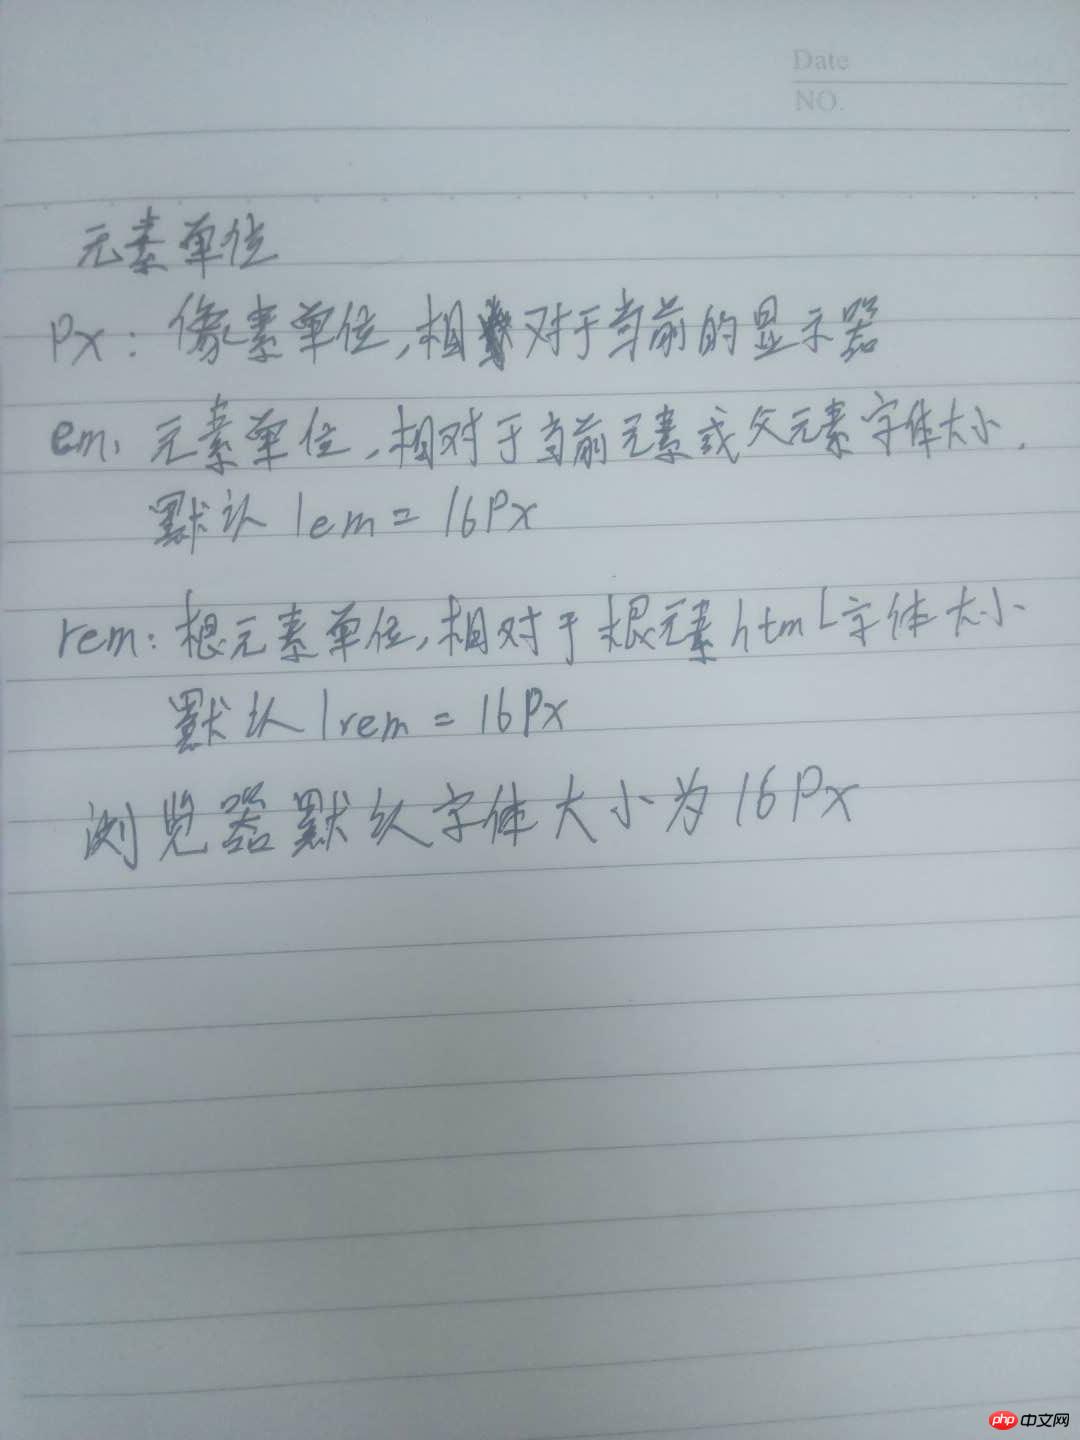 Date
NO.
元素单位
Px：像素单位,相对于当前的显示器
em: 元素单位,相对于当前元素或父元素字体大小.
默认 1em = 16Px
rem: 根元素单位,相对于根元素html字体大小
默认 1rem = 16Px
浏览器默认字体大小为16Px
php中文网